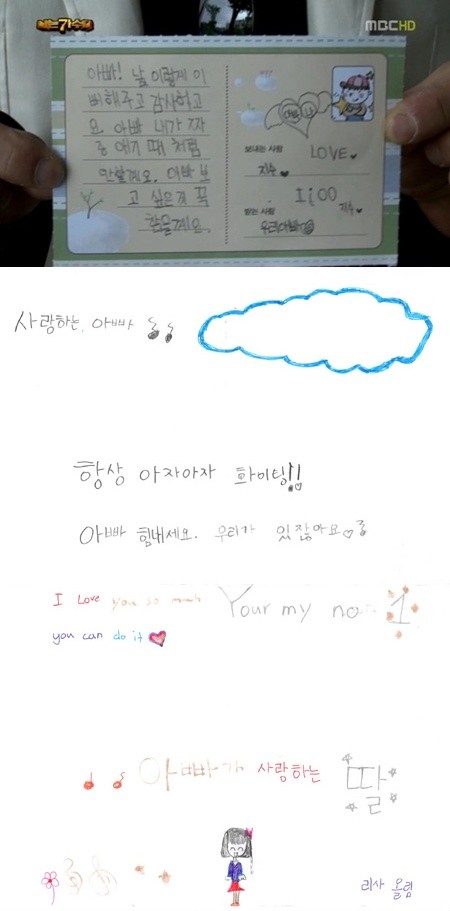 나는 가수다
MBC HD
아빠! 날 이렇게 이
뻐해주고 감사하고
요. 아빠 내가 짜
증 애기 때 처럼
안할게요. 아빠 보
고 싶은거 꼭
참을게요.
보내는 사람
LOVE♥
지수 ♥
1100
받는 사람
지수♥
우리아빠
사랑하는 아빠
항상 아자아자 화이팅!!
아빠 힘내세요. 우리가 있잖아요♡
I Love you so much
you can do it ♥
Your my no 1
아빠가 사랑하는 딸
리사 올림